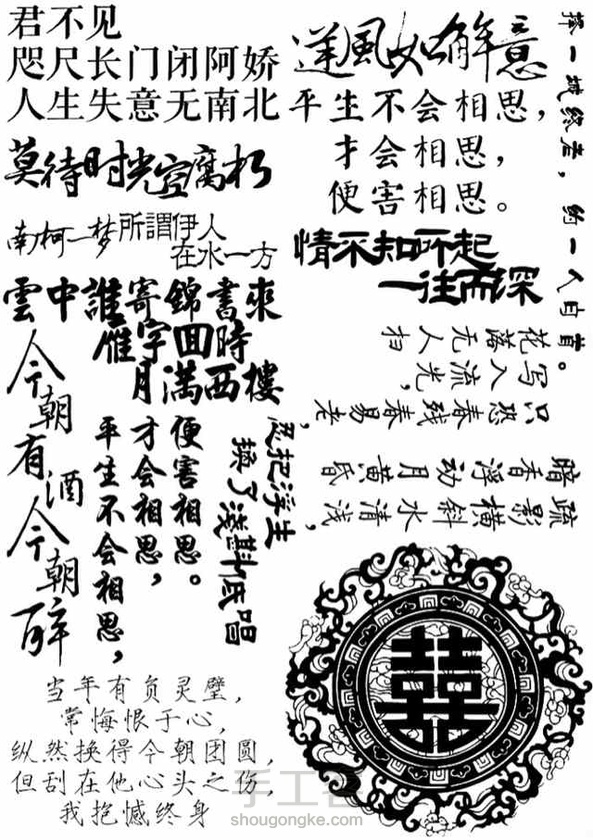 君不见
咫尺长门闭阿娇
人生失意无南北
逆風如解意
平生不会相思，
才会相思，
便害相思。
莫待时光空腐朽
南柯一梦
所謂伊人
在水一方
情不知所起
一往而深
雲中誰寄錦書來
雁字回時
月滿西樓
择一城终老，约一人白首。
花落无人扫
写入流光，
只恐残春易老，
暗香浮动月黄昏
疏影横斜水清浅，
今朝有酒今朝醉
平生不会相思，
才会相思，
便害相思。
忍把浮生
换了浅斟低唱
囍
当年有负灵璧，
常悔恨于心，
纵然换得今朝团圆，
但刮在他心头之伤，
我抱憾终身
手工客
shougongke.com